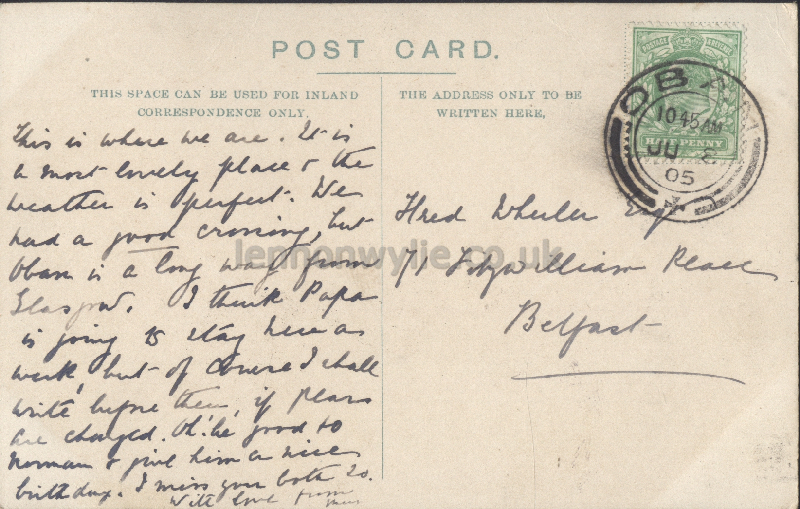 POST CARD.
THIS SPACE CAN BE USED FOR INLAND
CORRESPONDENCE ONLY.
THE ADDRESS ONLY TO BE
WRITTEN HERE,
POSTAGE REVENUE
HALFPENNY
OBAN
10 45 AM
JU 2
05
This is where we are. It is
a most lovely place & the
weather is perfect. We
had a good crossing, but
Oban is a long way from
Glasgow. I think Papa
is going to stay here a
week, but of course I shall
write before then, if plans
are changed. Oh! be good to
Norman & give him a nice
birthday. I miss you both so.
With love from
Fred Wheeler Esq
71 Fitzwilliam Place
Belfast
lennonwylie.co.uk